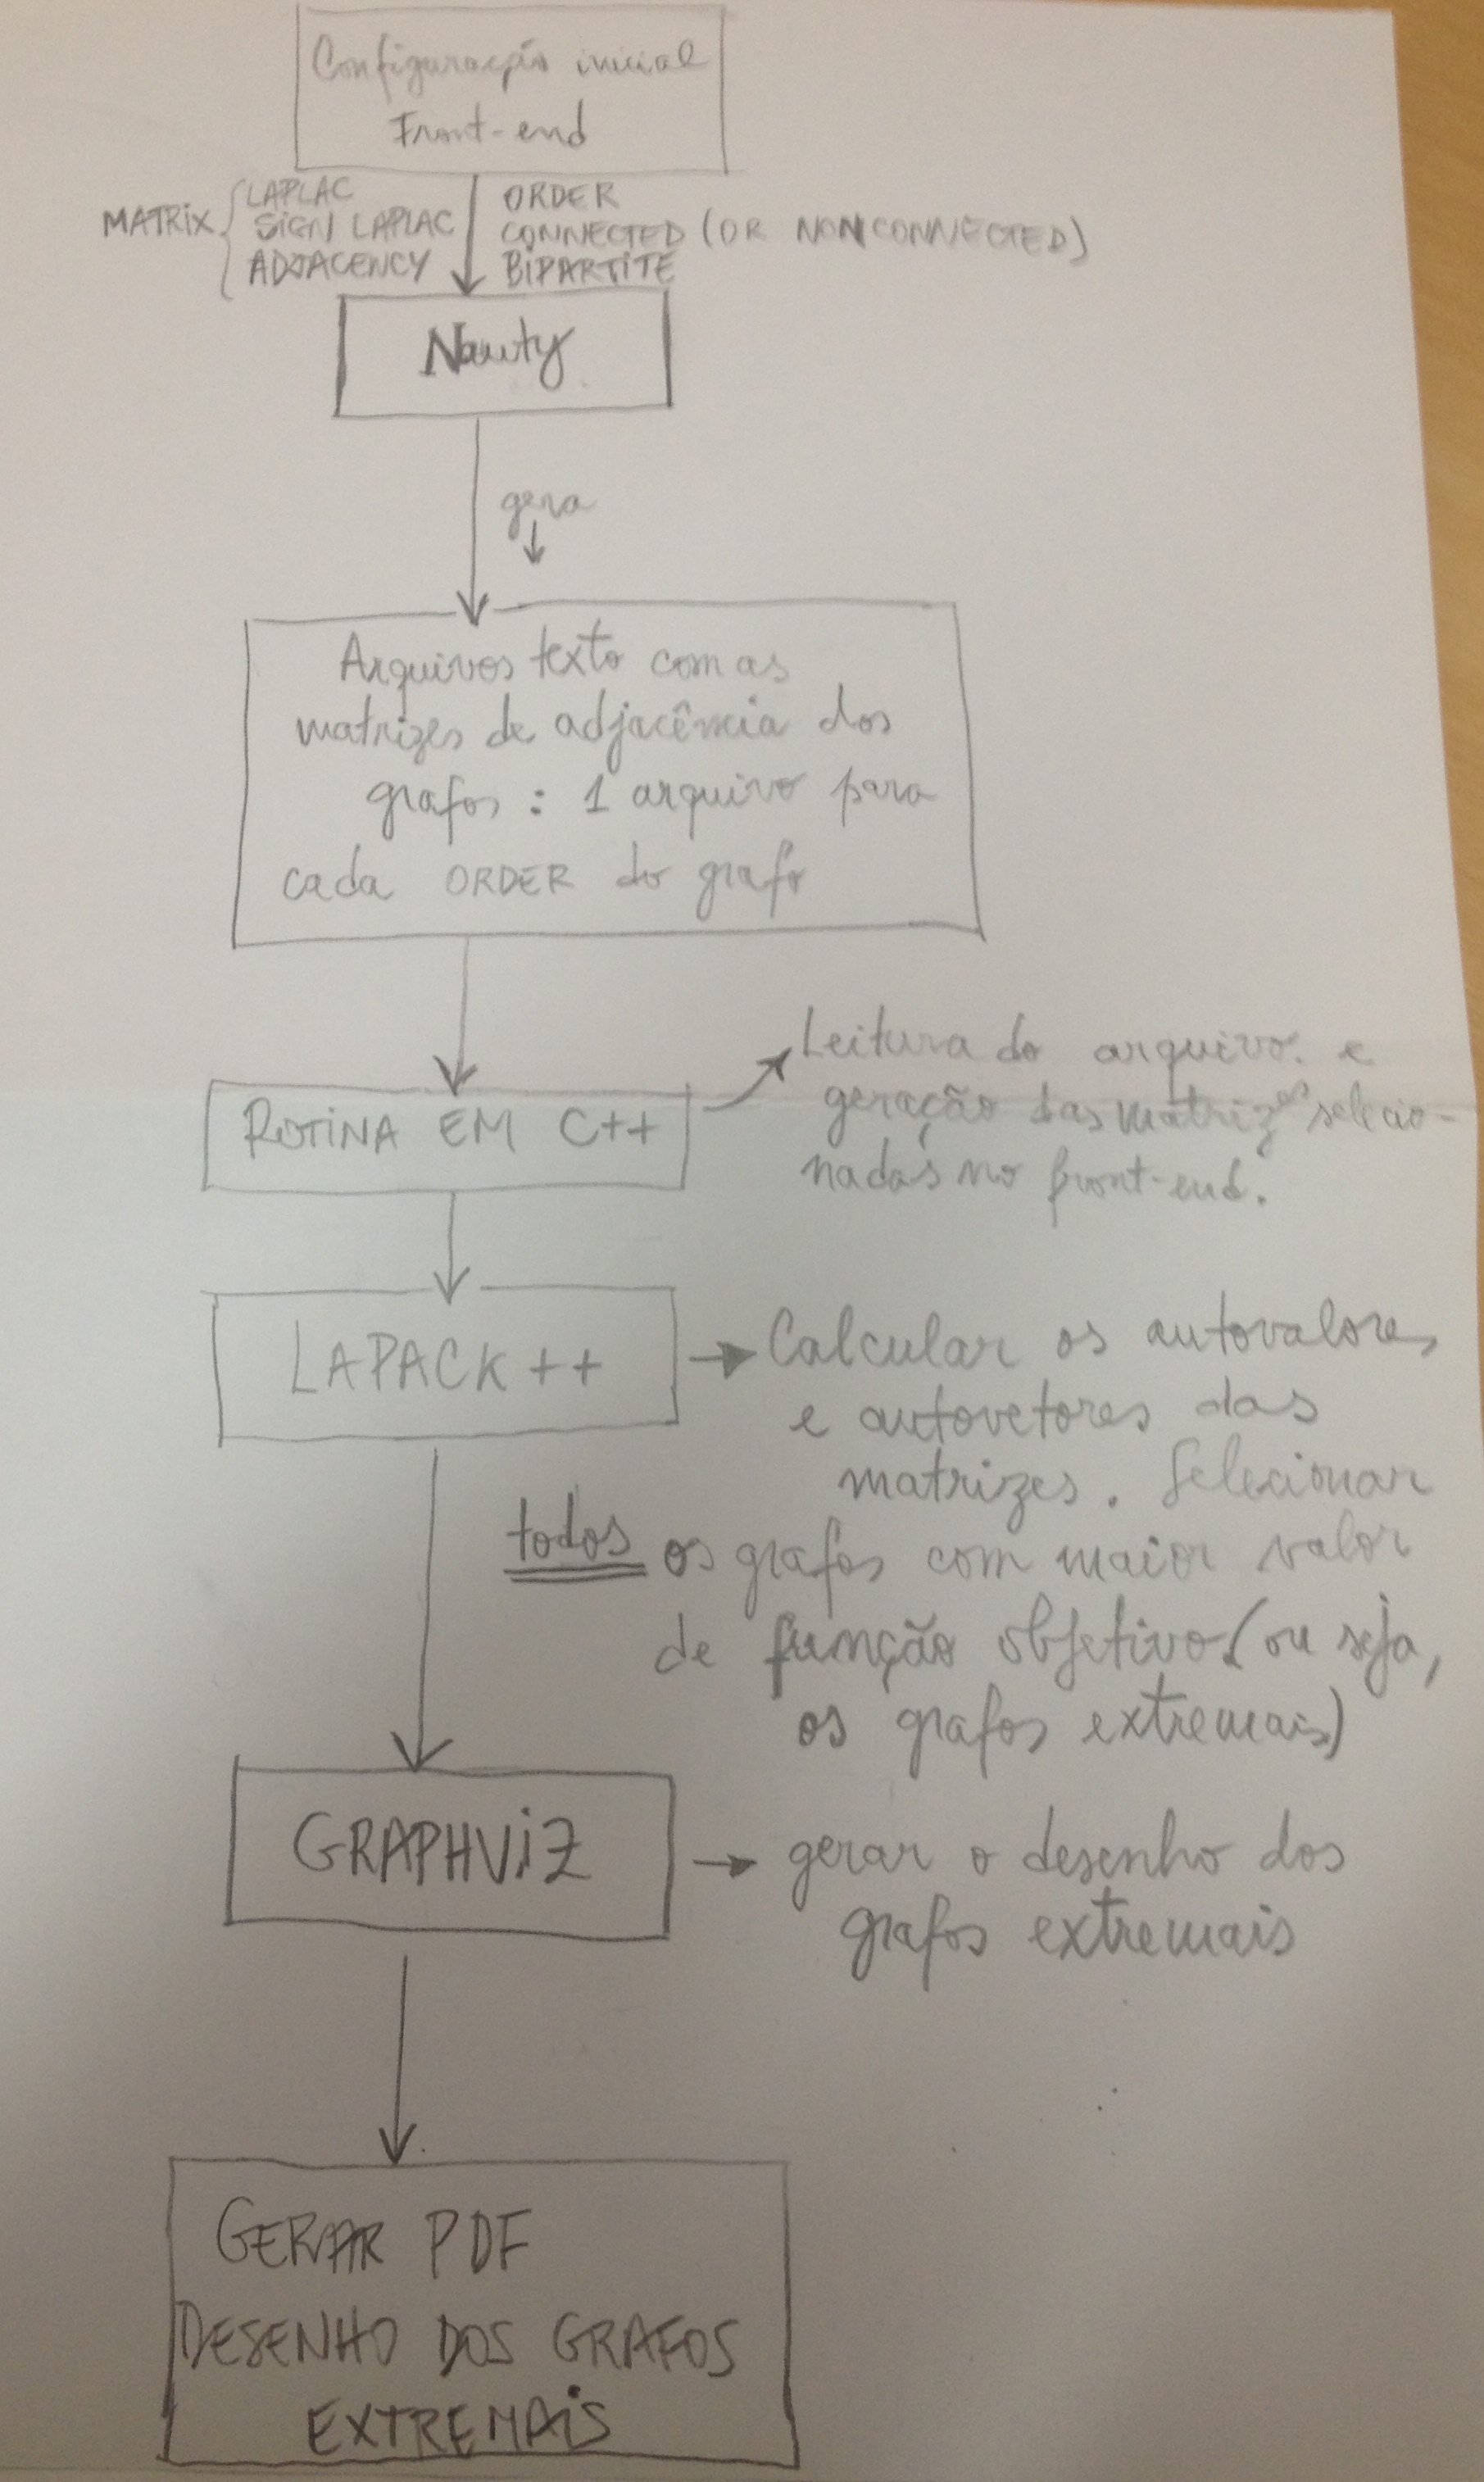 Configuração inicial
Front-end
MATRIX { LAPLAC
SIGN LAPLAC
ADJACENCY
ORDER
CONNECTED (OR NONCONNECTED)
BIPARTITE
Nauty
gera
Arquivos texto com as
matrizes de adjacência dos
grafos : 1 arquivo para
cada ORDER do grafo
ROTINA EM C++
Leitura do arquivo. e
geração das matrizes selecio-
nadas no front-end.
LAPACK ++
Calcular os autovalores
e autovetores das
matrizes. Selecionar
todos os grafos com maior valor
de função objetivo. (ou seja,
os grafos extremais)
GRAPHViZ
gerar o desenho dos
grafos extremais
GERAR PDF
DESENHO DOS GRAFOS
EXTREMAiS